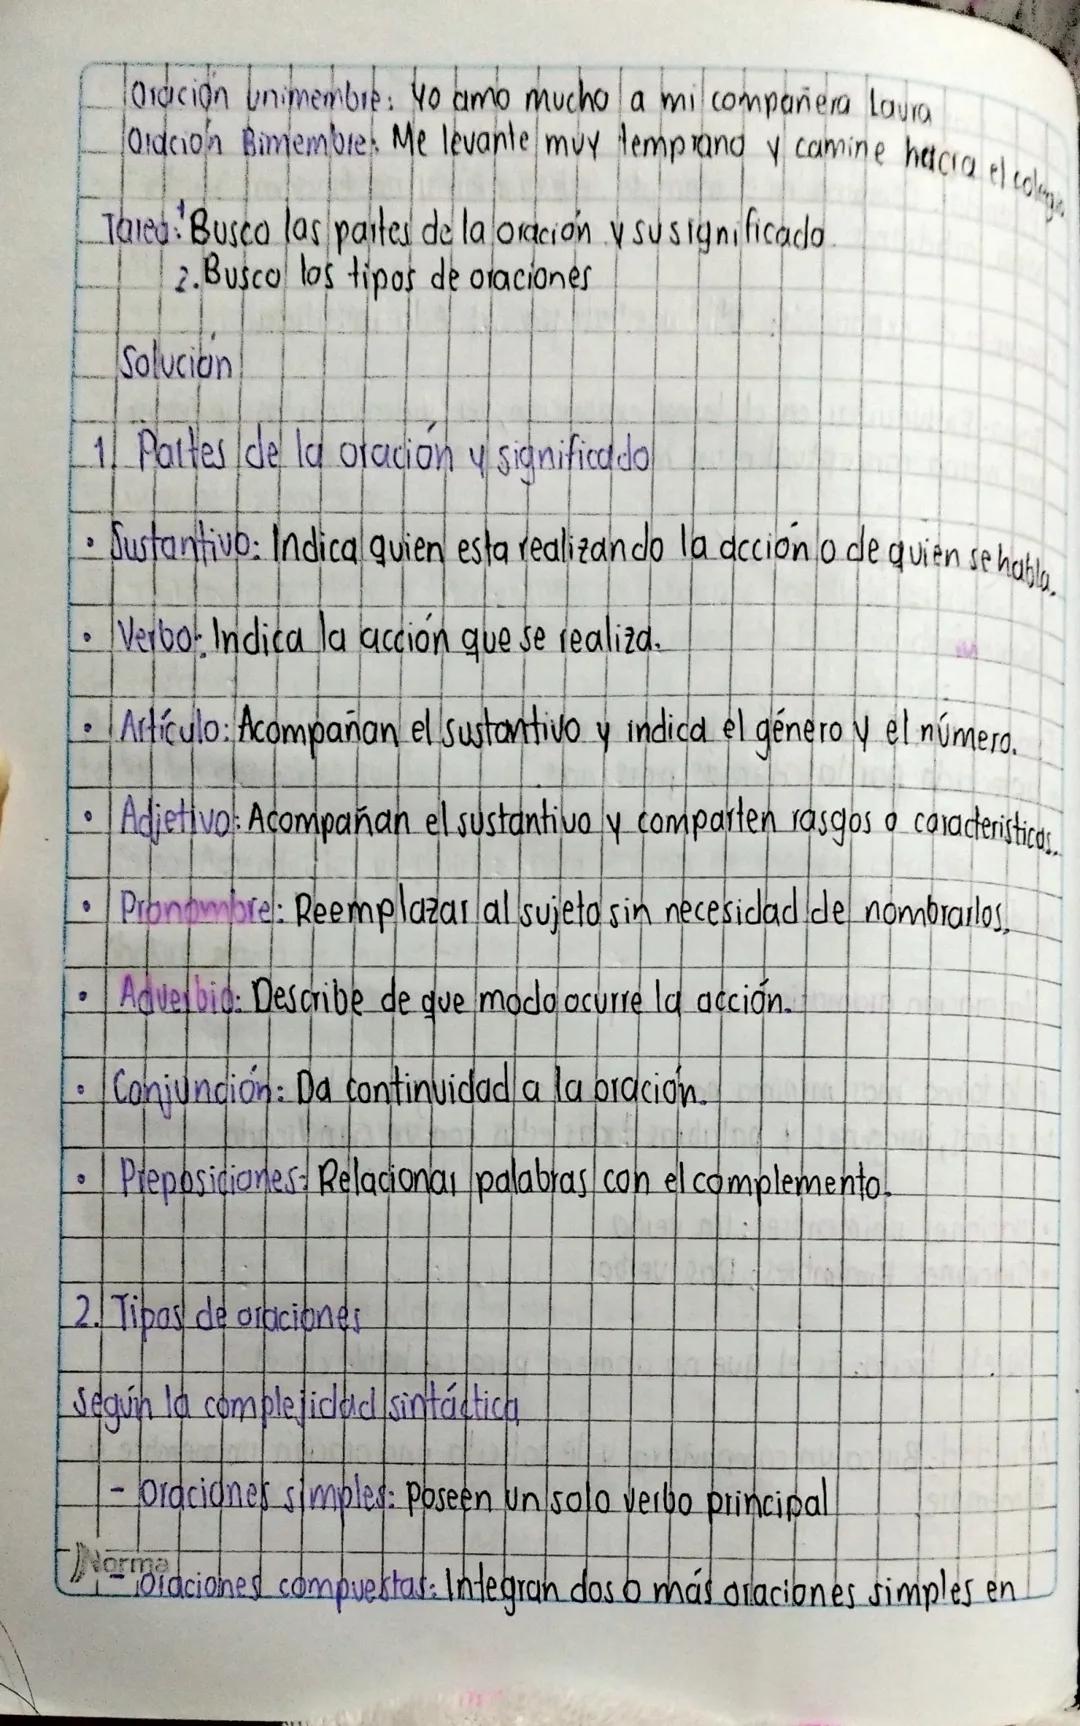 Oración Unimembre: Yo amo mucho a mi compañera Laura
Oración Bimembre: Me levante muy temprano y camine hacia el colegio
Tarea: 1. Busco las partes de la oración y su significado.
2. Busco los tipos de oraciones
Solución
1. Partes de la oración y significado
• Sustantivo: Indica quien esta realizando la acción o de quién se habla.
• Verbo: Indica la acción que se realiza.
• Artículo: Acompañan el sustantivo y indica el género y el número.
• Adjetivo: Acompañan el sustantivo y comparten rasgos o caracteristicas.
• Pronombre: Reemplazar al sujeto sin necesidad de nombrarlos.
• Adverbio: Describe de que modo ocurre la acción.
• Conjunción: Da continuidad a la oración.
• Preposiciones: Relacionar palabras con el complemento.
2. Tipos de oraciones
Según la complejidad sintáctica
- Oraciones simples: Poseen un solo verbo principal
Norma
- Oraciones compuestas: Integran dos o más oraciones simples en